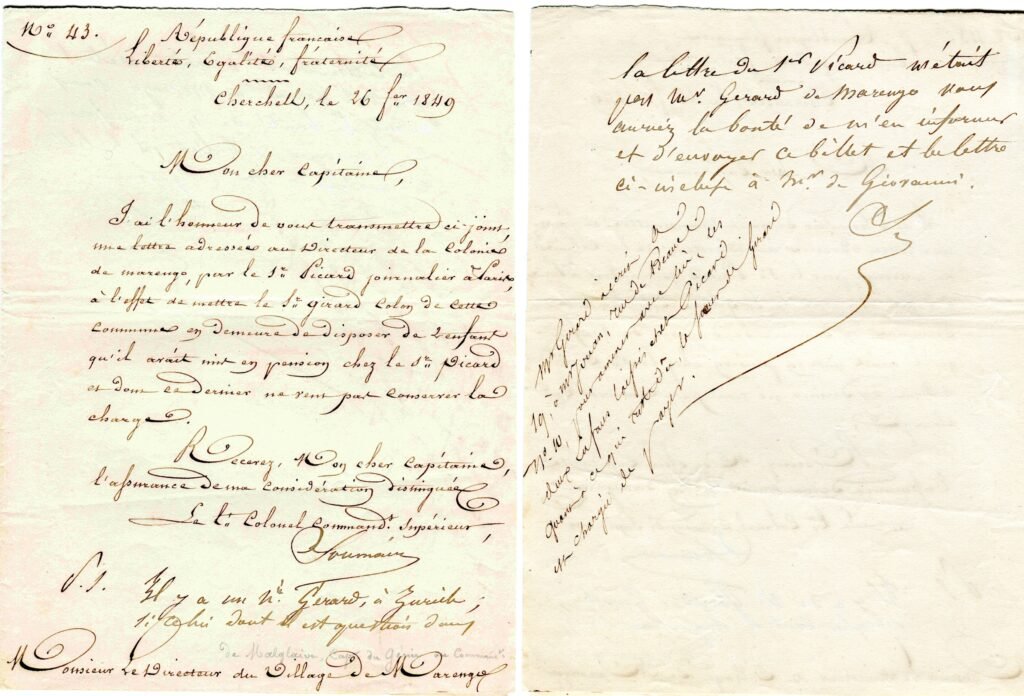 No 43.
République française
Liberté, Egalité, fraternité
Cherchell, le 26 fer 1849
Mon cher Capitaine,
J'ai l'honneur de vous transmettre ci-joint,
une lettre adressée au Directeur de la Colonie
de marengo, par le Sr Picard journalier à Paris,
à l'effet de mettre le Sr girard Colon de cette
Commune en demeure de disposer de l'enfant
qu'il avait mis en pension chez le Sr Picard
et dont ce dernier ne veut pas conserver la
charge.
Recevez, Mon cher Capitaine,
l'assurance de ma considération distinguée
Le Lt Colonel Commandt Supérieur,
Soumain
P.S. Il y a un Mr Gerard, à Zurich;
si celui dont il est question dans
de Malglaive, Cape du Génie
Monsieur Le Directeur du Village de Marengo
la lettre du Sr Picard n'était
pas Mr. Gerard de Marengo vous
auriez la bonté de m'en informer
et d'envoyer ce billet et la lettre
ci-incluse à Mr de Giovanni.
Mr Gerard écrit à
19, à Mr rue de
No 10, pour avec lui les
deux chez Picard
quant à ce qui dû, le Gerard
est chargé de payer.